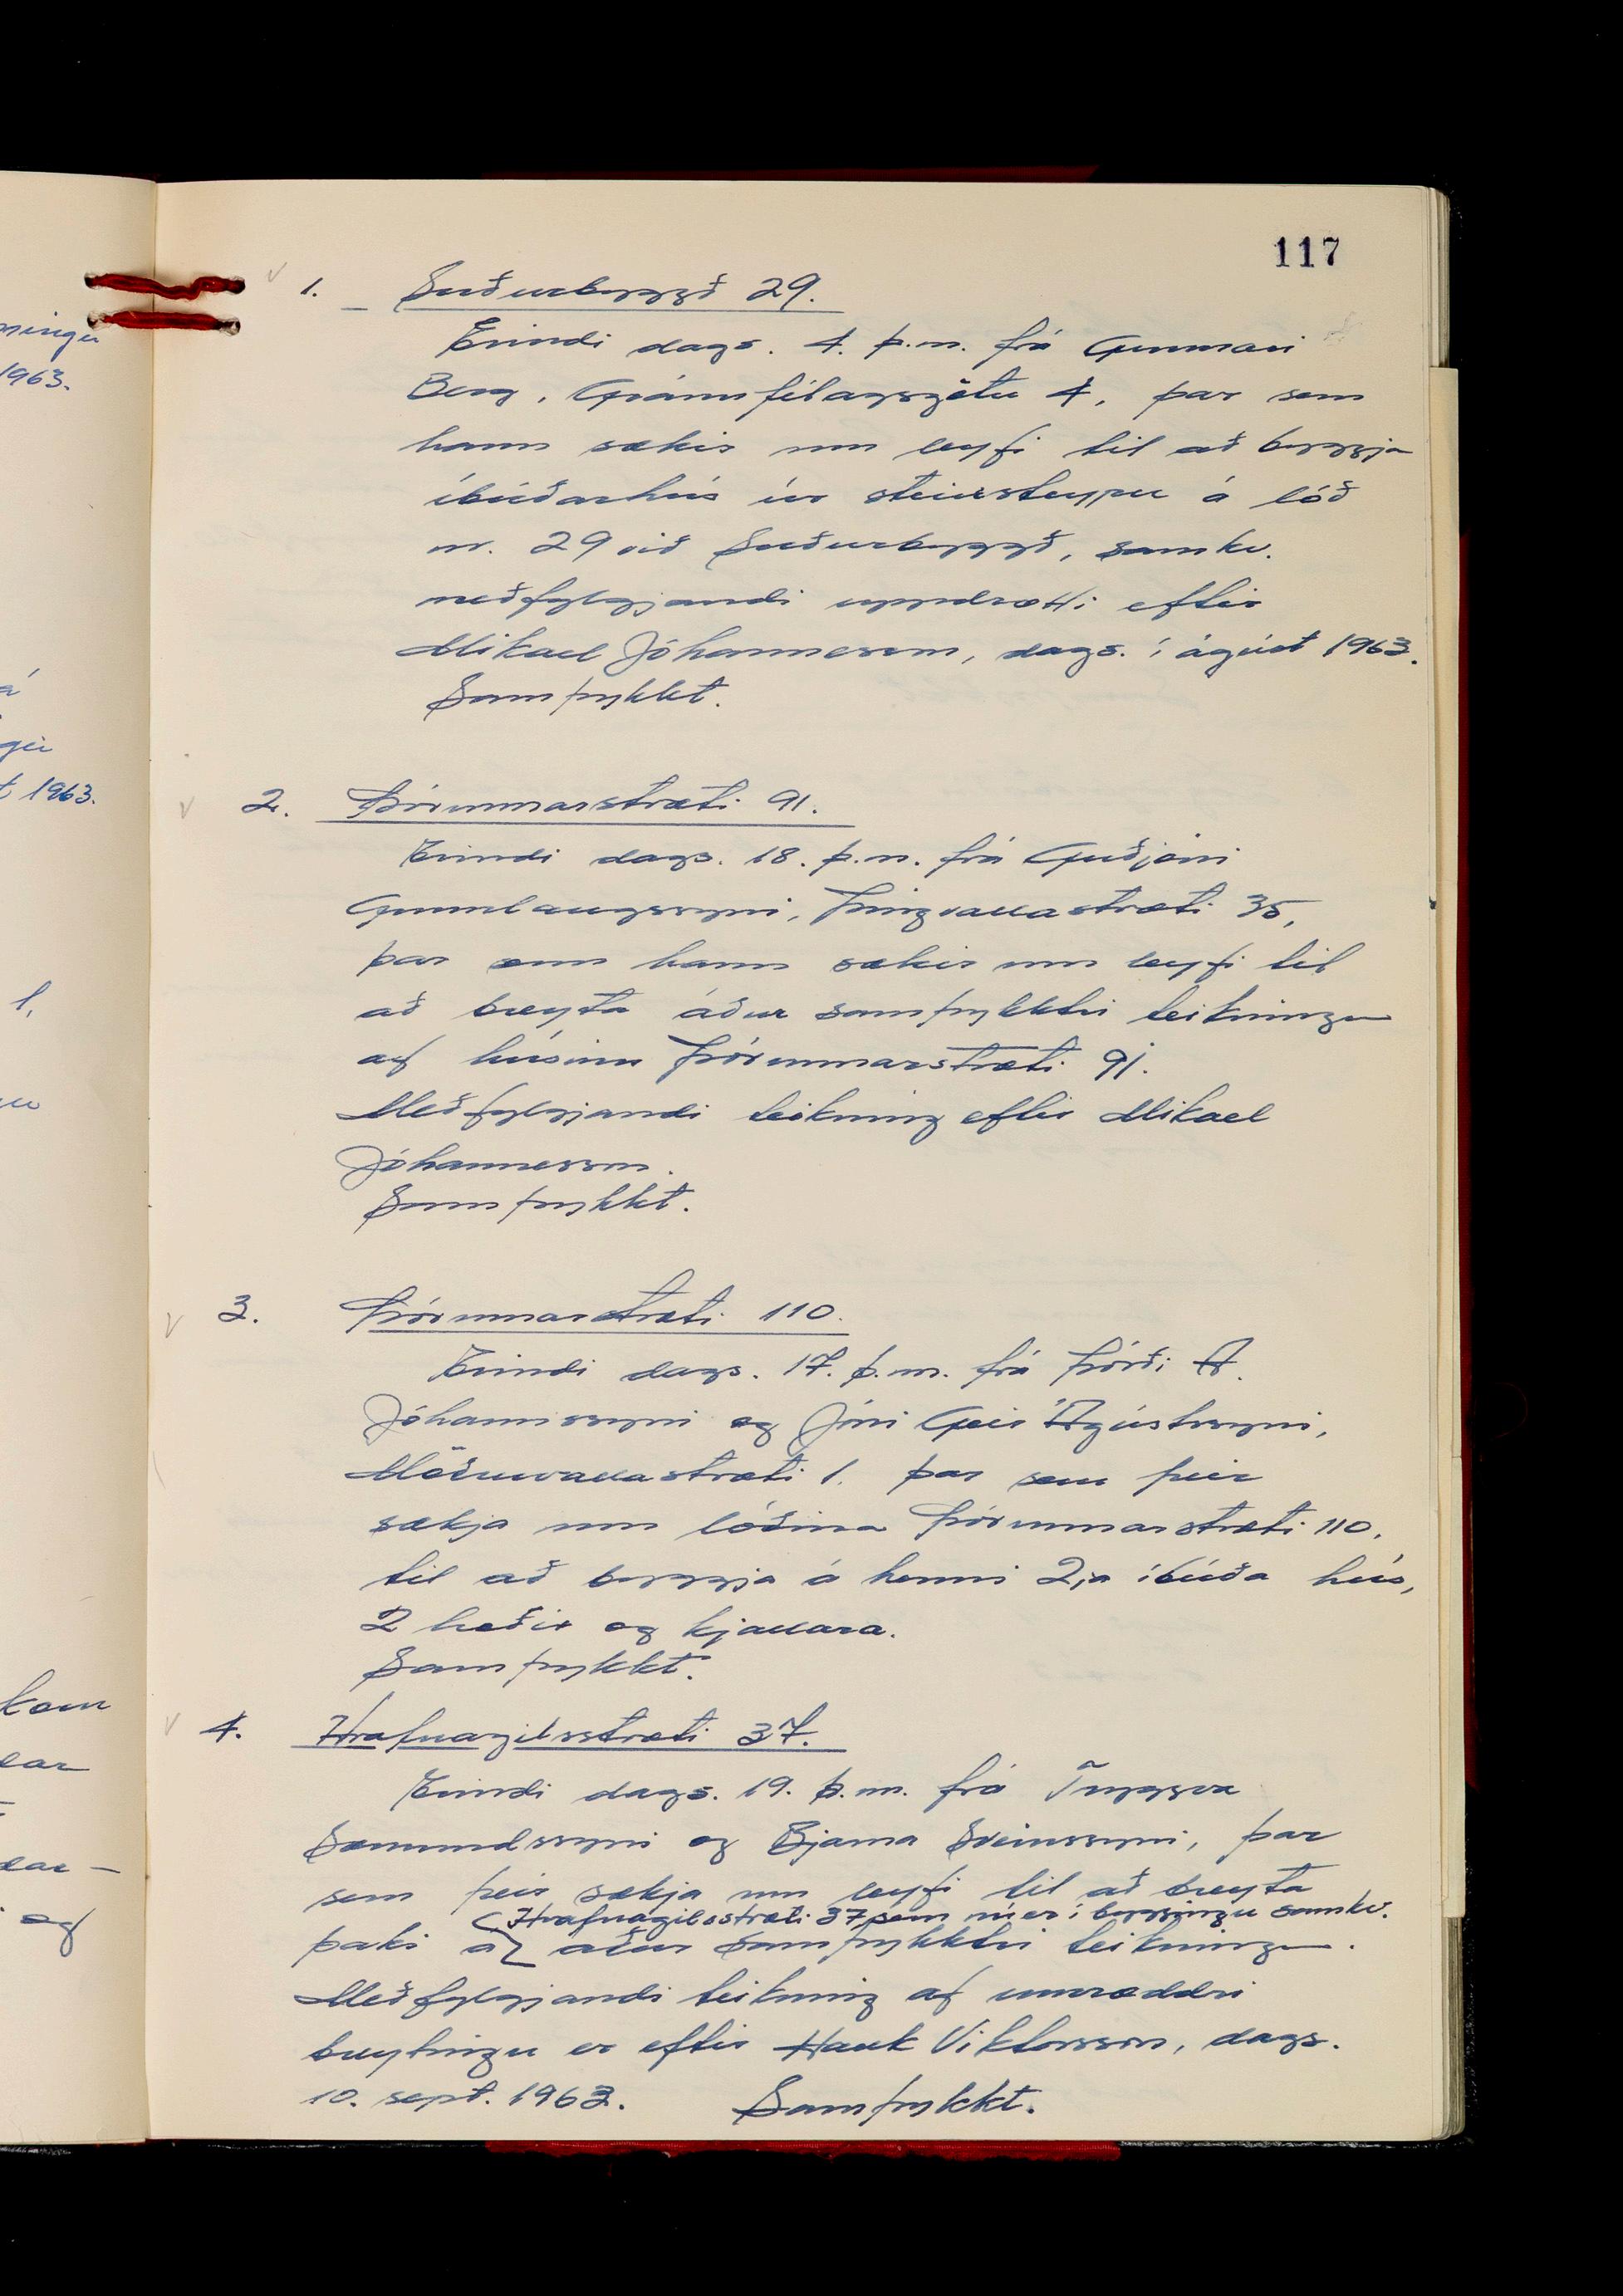 117
1. Suðurbyggð 29.
Erindi dags. 4. þ.m. frá Gunnari
Berg, Gránufélagsgötu 4, þar sem
hann sækir um leyfi til að byggja
íbúðarhús úr steinsteypu á lóð
nr. 29 við Suðurbyggð, samkv.
meðfylgjandi uppdrætti eftir
Mikael Jóhannesson, dags. í ágúst 1963.
Samþykkt.
2. Þórunnarstræti 91.
Erindi dags. 18. þ.m. frá Guðjóni
Gunnlaugssyni, Þingvallastræti 35,
þar sem hann sækir um leyfi til
að breyta áður samþykktri teikningu
af húsinu Þórunnarstræti 91.
Meðfylgjandi teikning eftir Mikael
Jóhannesson.
Samþykkt.
3. Þórunnarstræti 110.
Erindi dags. 17. þ.m. frá Þórði A.
Jóhannssyni og Jóni Geir Ágústssyni,
Möðruvallastræti 1, þar sem þeir
sækja um lóðina Þórunnarstræti 110,
til að byggja á henni 2ja íbúða hús,
2 hæðir og kjallara.
Samþykkt.
4. Hrafnagilsstræti 37.
Erindi dags. 19. þ.m. frá Tryggva
Sæmundssyni og Bjarna Sveinssyni, þar
sem þeir sækja um leyfi til að breyta
Hrafnagilsstræti 37 sem nú er í byggingu samkv.
þaki á áður samþykktri teikningu.
Meðfylgjandi teikning af umræddri
breytingu er eftir Hauk Viktorsson, dags.
10. sept. 1963. Samþykkt.
ningu
1963.
á
gu
t 1963.
1,
kom
lar
og